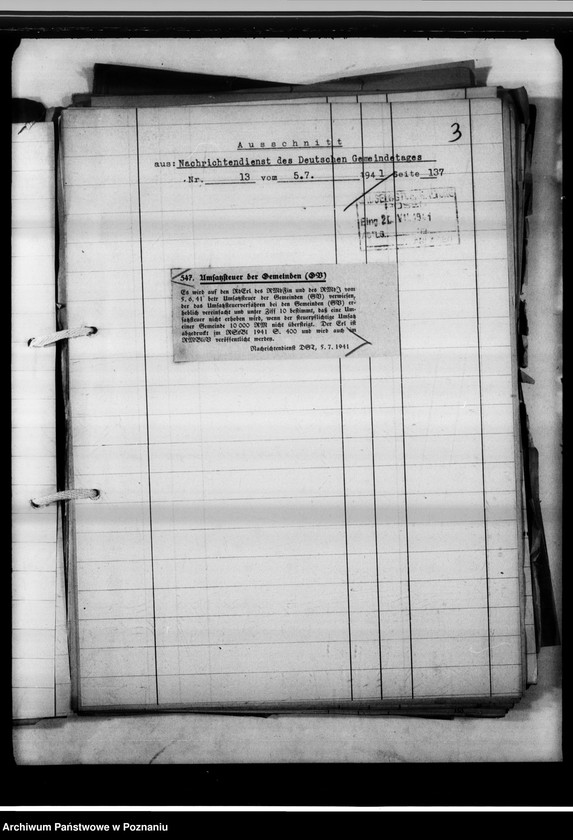 3
Ausschnitt
aus: Nachrichtendienst des Deutschen Gemeindetages
Nr. 13 vom 5.7. 1941 Seite 137
Eing 2 VII. 1941
547. Umsatzsteuer der Gemeinden (GV)
Es wird auf den RdErl des RMdFin und des RMdJ vom
5. 6. 41 betr Umsatzsteuer der Gemeinden (GV) verwiesen,
der das Umsatzsteuerverfahren bei den Gemeinden (GV) er-
heblich vereinfacht und unter Ziff 10 bestimmt, daß eine Um-
satzsteuer nicht erhoben wird, wenn der steuerpflichtige Umsatz
einer Gemeinde 10 000 RM nicht übersteigt. Der Erl ist
abgedruckt im RStBl 1941 S. 400 und wird auch im
RMBliV veröffentlicht werden.
Nachrichtendienst DGT, 5. 7. 1941
Archiwum Państwowe w Poznaniu